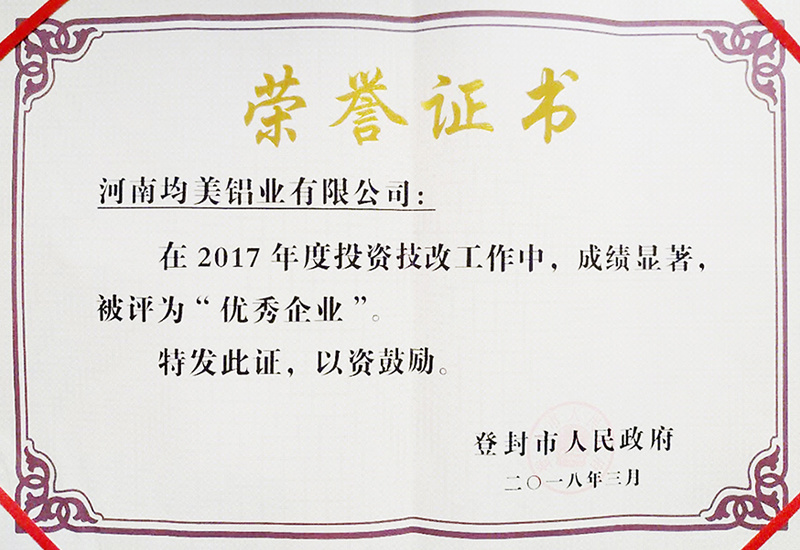 荣誉证书
河南均美铝业有限公司：
在2017年度投资技改工作中，成绩显著，
被评为“优秀企业”。
特发此证，以资鼓励。
登封市人民政府
二〇一八年三月